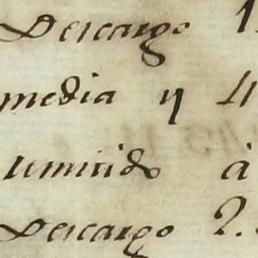 Descargo 1
media y 4
remitido à
Descargo 2.